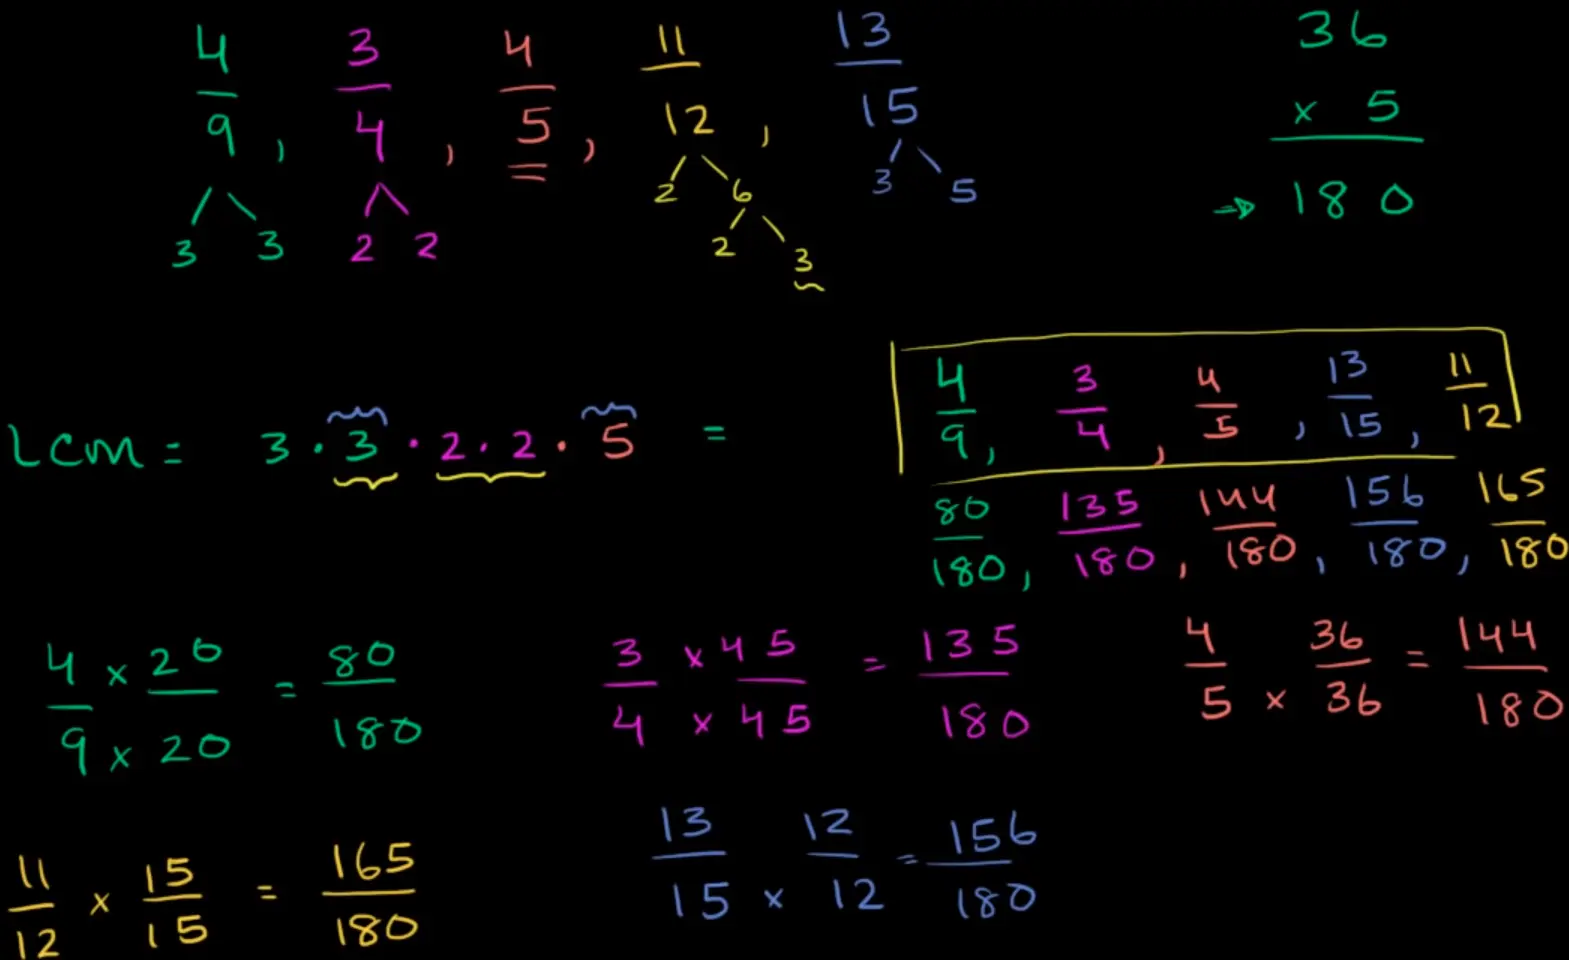 4/9, 3/4, 4/5, 11/12, 13/15
3 3 2 2 2 6 3 5
2 3
36
x 5
180
LCM = 3 · 3 · 2 · 2 · 5 =
4/9, 3/4, 4/5, 13/15, 11/12
80/180, 135/180, 144/180, 156/180, 165/180
4/9 x 20/20 = 80/180
3/4 x 45/45 = 135/180
4/5 x 36/36 = 144/180
11/12 x 15/15 = 165/180
13/15 x 12/12 = 156/180